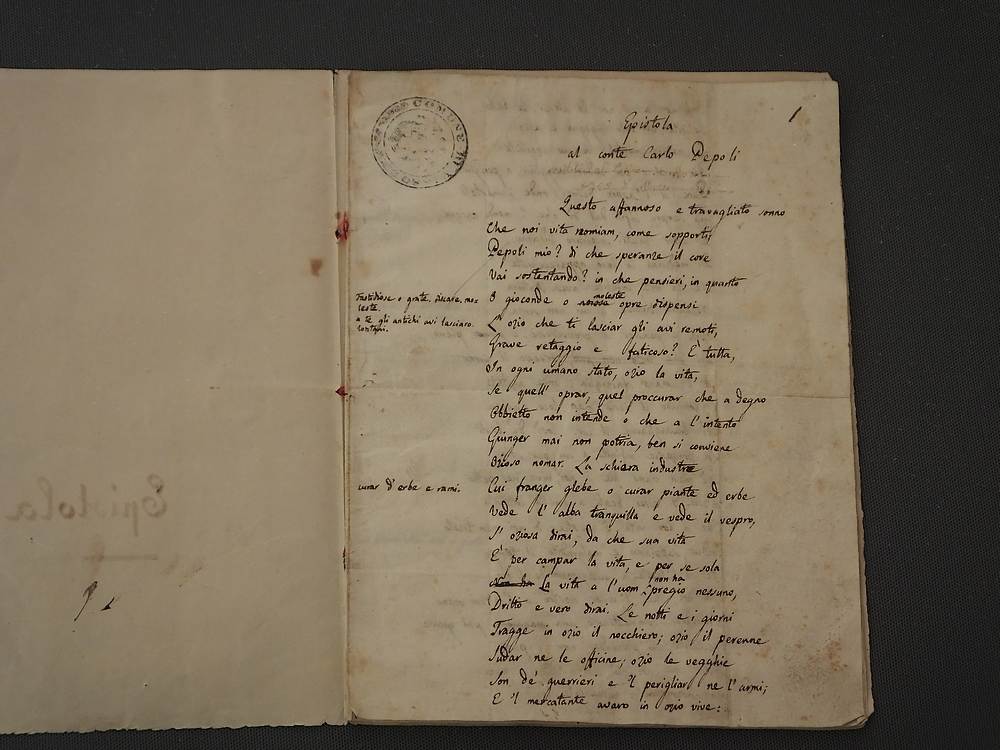 COMUNE DI VISSO
1
Epistola
al conte Carlo Pepoli
Questo affannoso e travagliato sonno
Che noi vita nomiam, come sopporti,
Pepoli mio? di che speranze il core
Vai sostentando? in che pensieri, in quanto
O gioconde o noiose moleste opre dispensi
Fastidiose o grate. discare, mo-
leste.
a te gli antichi avi lasciaro.
lontani.
L'ozio che ti lasciar gli avi remoti,
Grave retaggio e faticoso? È tutta,
In ogni umano stato, ozio la vita,
Se quell' oprar, quel proccurar che a degno
Obbietto non intende o che a l'intento
Giunger mai non potria, ben si conviene
Ozioso nomar. La schiera industre
Cui franger glebe o curar piante ed erbe
curar d'erbe e rami.
Vede l'alba tranquilla e vede il vespro,
S' oziosa dirai, da che sua vita
È per campar la vita, e per se sola
Non ha La vita a l'uom non ha pregio nessuno,
Dritto e vero dirai. Le notti e i giorni
Tragge in ozio il nocchiero; ozio il perenne
Sudar ne le officine; ozio le vegghie
Son de' guerrieri e 'l perigliar ne l'armi;
E 'l mercatante avaro in ozio vive:
Epistola